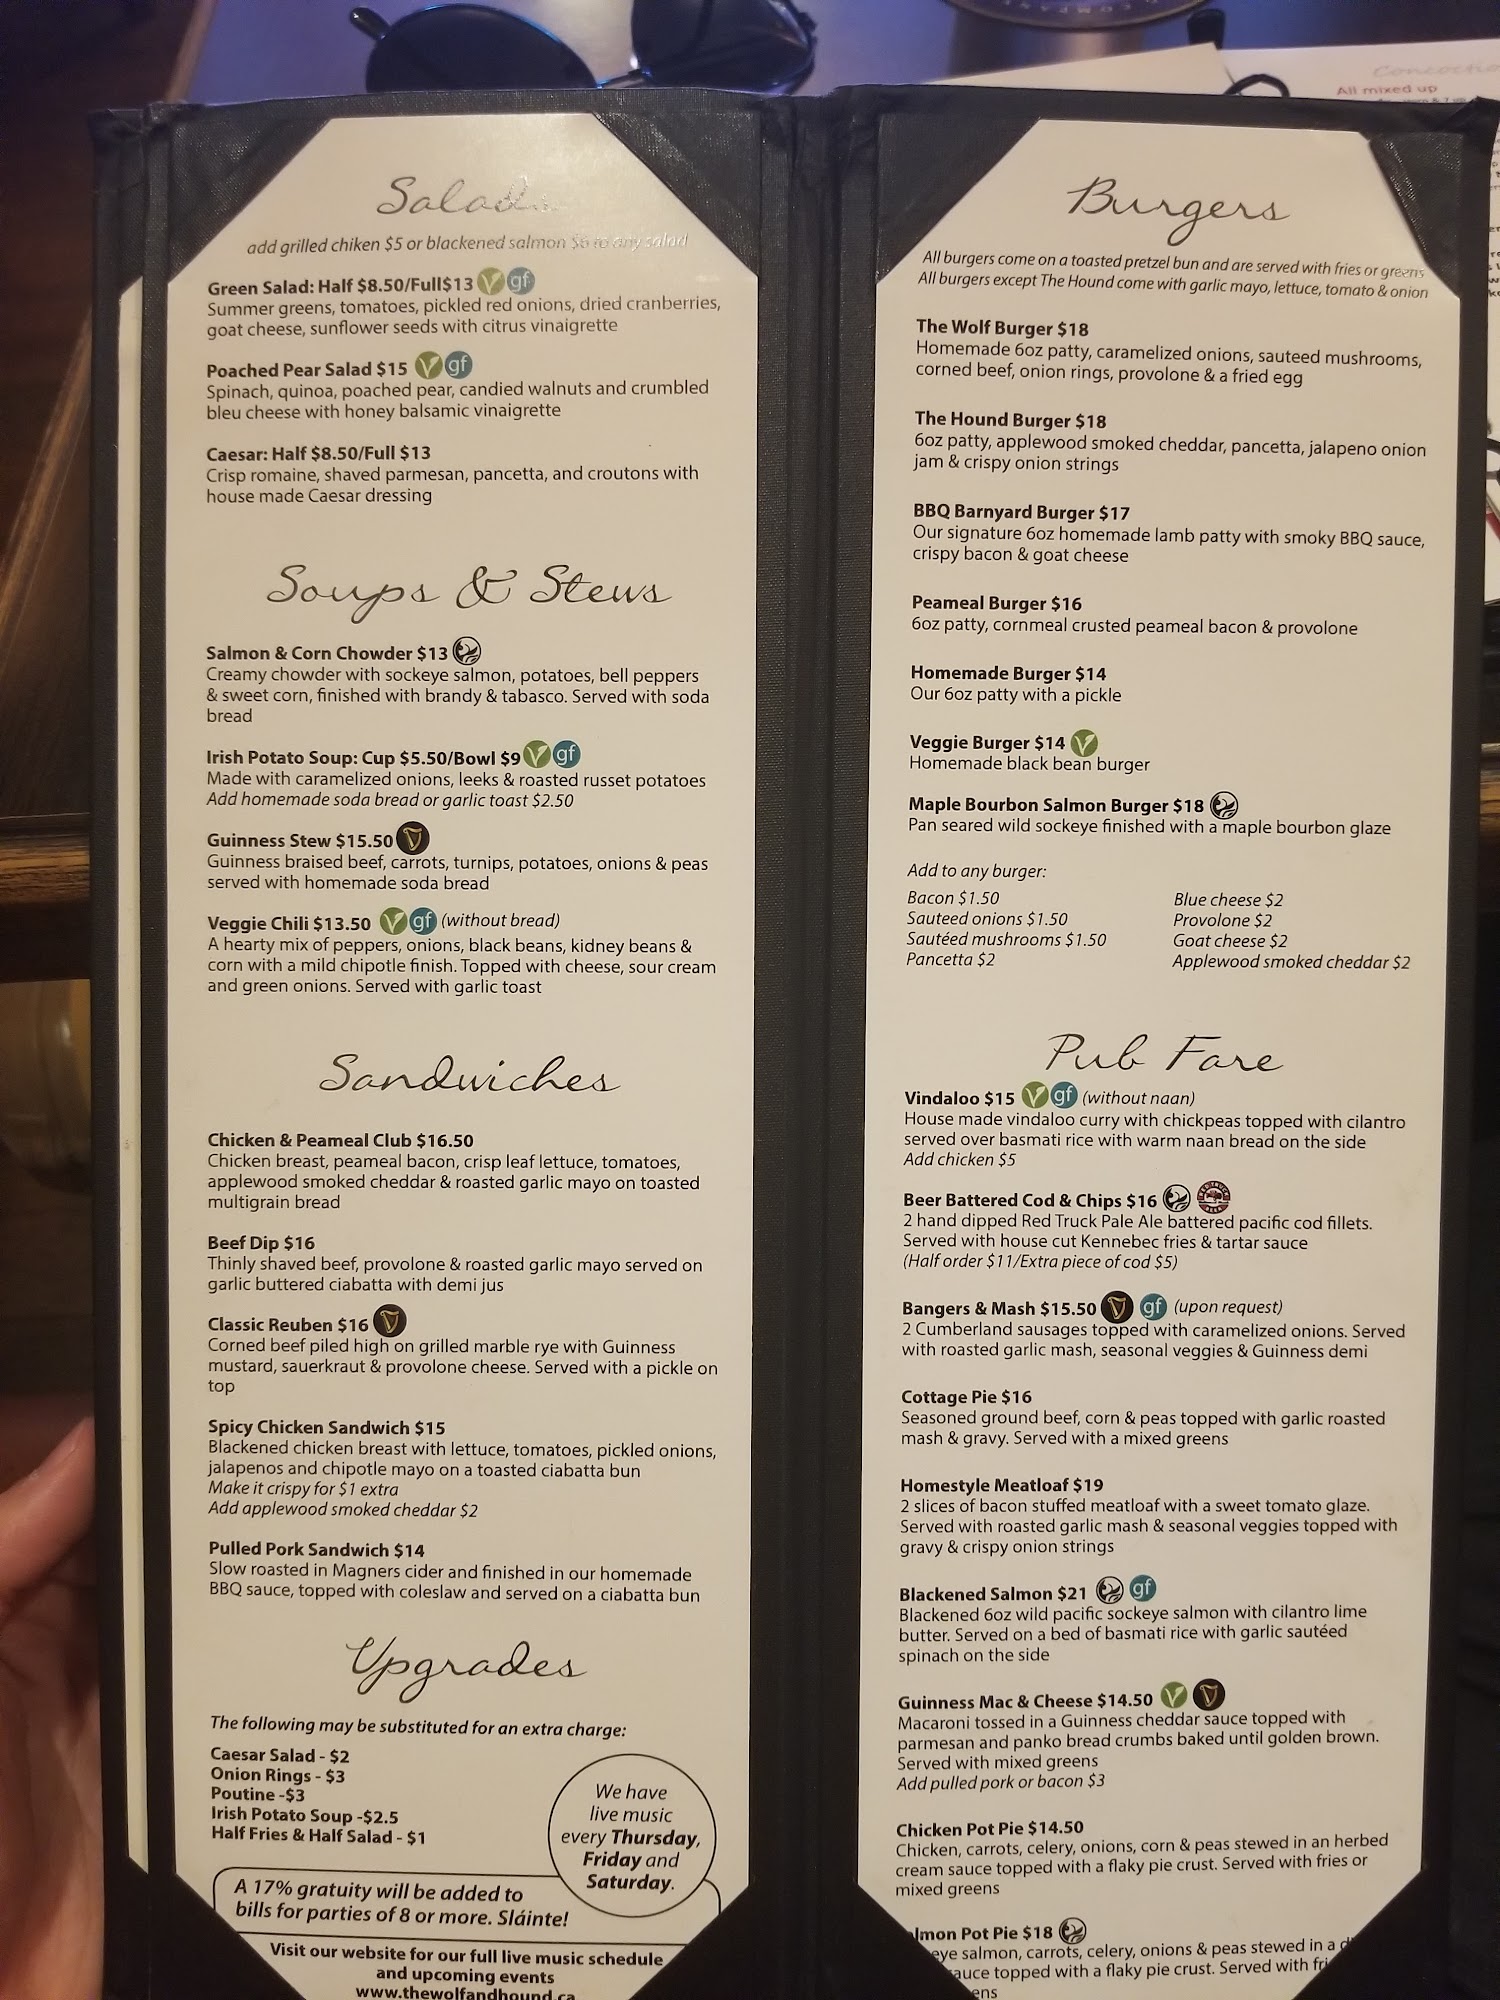 Salads
add grilled chiken $5 or blackened salmon $6 to any salad
Green Salad: Half $8.50/Full$13 V gf
Summer greens, tomatoes, pickled red onions, dried cranberries,
goat cheese, sunflower seeds with citrus vinaigrette
Poached Pear Salad $15 V gf
Spinach, quinoa, poached pear, candied walnuts and crumbled
bleu cheese with honey balsamic vinaigrette
Caesar: Half $8.50/Full $13
Crisp romaine, shaved parmesan, pancetta, and croutons with
house made Caesar dressing
Soups & Stews
Salmon & Corn Chowder $13
Creamy chowder with sockeye salmon, potatoes, bell peppers
& sweet corn, finished with brandy & tabasco. Served with soda
bread
Irish Potato Soup: Cup $5.50/Bowl $9 V gf
Made with caramelized onions, leeks & roasted russet potatoes
Add homemade soda bread or garlic toast $2.50
Guinness Stew $15.50
Guinness braised beef, carrots, turnips, potatoes, onions & peas
served with homemade soda bread
Veggie Chili $13.50 V gf (without bread)
A hearty mix of peppers, onions, black beans, kidney beans &
corn with a mild chipotle finish. Topped with cheese, sour cream
and green onions. Served with garlic toast
Sandwiches
Chicken & Peameal Club $16.50
Chicken breast, peameal bacon, crisp leaf lettuce, tomatoes,
applewood smoked cheddar & roasted garlic mayo on toasted
multigrain bread
Beef Dip $16
Thinly shaved beef, provolone & roasted garlic mayo served on
garlic buttered ciabatta with demi jus
Classic Reuben $16
Corned beef piled high on grilled marble rye with Guinness
mustard, sauerkraut & provolone cheese. Served with a pickle on
top
Spicy Chicken Sandwich $15
Blackened chicken breast with lettuce, tomatoes, pickled onions,
jalapenos and chipotle mayo on a toasted ciabatta bun
Make it crispy for $1 extra
Add applewood smoked cheddar $2
Pulled Pork Sandwich $14
Slow roasted in Magners cider and finished in our homemade
BBQ sauce, topped with coleslaw and served on a ciabatta bun
Upgrades
The following may be substituted for an extra charge:
Caesar Salad - $2
Onion Rings - $3
Poutine -$3
Irish Potato Soup -$2.5
Half Fries & Half Salad - $1
We have
live music
every Thursday,
Friday and
Saturday.
A 17% gratuity will be added to
bills for parties of 8 or more. Sláinte!
Visit our website for our full live music schedule
and upcoming events
www.thewolfandhound.ca
Burgers
All burgers come on a toasted pretzel bun and are served with fries or greens
All burgers except The Hound come with garlic mayo, lettuce, tomato & onion
The Wolf Burger $18
Homemade 6oz patty, caramelized onions, sauteed mushrooms,
corned beef, onion rings, provolone & a fried egg
The Hound Burger $18
6oz patty, applewood smoked cheddar, pancetta, jalapeno onion
jam & crispy onion strings
BBQ Barnyard Burger $17
Our signature 6oz homemade lamb patty with smoky BBQ sauce,
crispy bacon & goat cheese
Peameal Burger $16
6oz patty, cornmeal crusted peameal bacon & provolone
Homemade Burger $14
Our 6oz patty with a pickle
Veggie Burger $14 V
Homemade black bean burger
Maple Bourbon Salmon Burger $18
Pan seared wild sockeye finished with a maple bourbon glaze
Add to any burger:
Bacon $1.50
Sauteed onions $1.50
Sautéed mushrooms $1.50
Pancetta $2
Blue cheese $2
Provolone $2
Goat cheese $2
Applewood smoked cheddar $2
Pub Fare
Vindaloo $15 V gf (without naan)
House made vindaloo curry with chickpeas topped with cilantro
served over basmati rice with warm naan bread on the side
Add chicken $5
Beer Battered Cod & Chips $16
2 hand dipped Red Truck Pale Ale battered pacific cod fillets.
Served with house cut Kennebec fries & tartar sauce
(Half order $11/Extra piece of cod $5)
Bangers & Mash $15.50 gf (upon request)
2 Cumberland sausages topped with caramelized onions. Served
with roasted garlic mash, seasonal veggies & Guinness demi
Cottage Pie $16
Seasoned ground beef, corn & peas topped with garlic roasted
mash & gravy. Served with a mixed greens
Homestyle Meatloaf $19
2 slices of bacon stuffed meatloaf with a sweet tomato glaze.
Served with roasted garlic mash & seasonal veggies topped with
gravy & crispy onion strings
Blackened Salmon $21 gf
Blackened 6oz wild pacific sockeye salmon with cilantro lime
butter. Served on a bed of basmati rice with garlic sautéed
spinach on the side
Guinness Mac & Cheese $14.50 V
Macaroni tossed in a Guinness cheddar sauce topped with
parmesan and panko bread crumbs baked until golden brown.
Served with mixed greens
Add pulled pork or bacon $3
Chicken Pot Pie $14.50
Chicken, carrots, celery, onions, corn & peas stewed in an herbed
cream sauce topped with a flaky pie crust. Served with fries or
mixed greens
lmon Pot Pie $18
eye salmon, carrots, celery, onions & peas stewed in a
auce topped with a flaky pie crust. Served with fri
ens
All mixed up
COMPANY